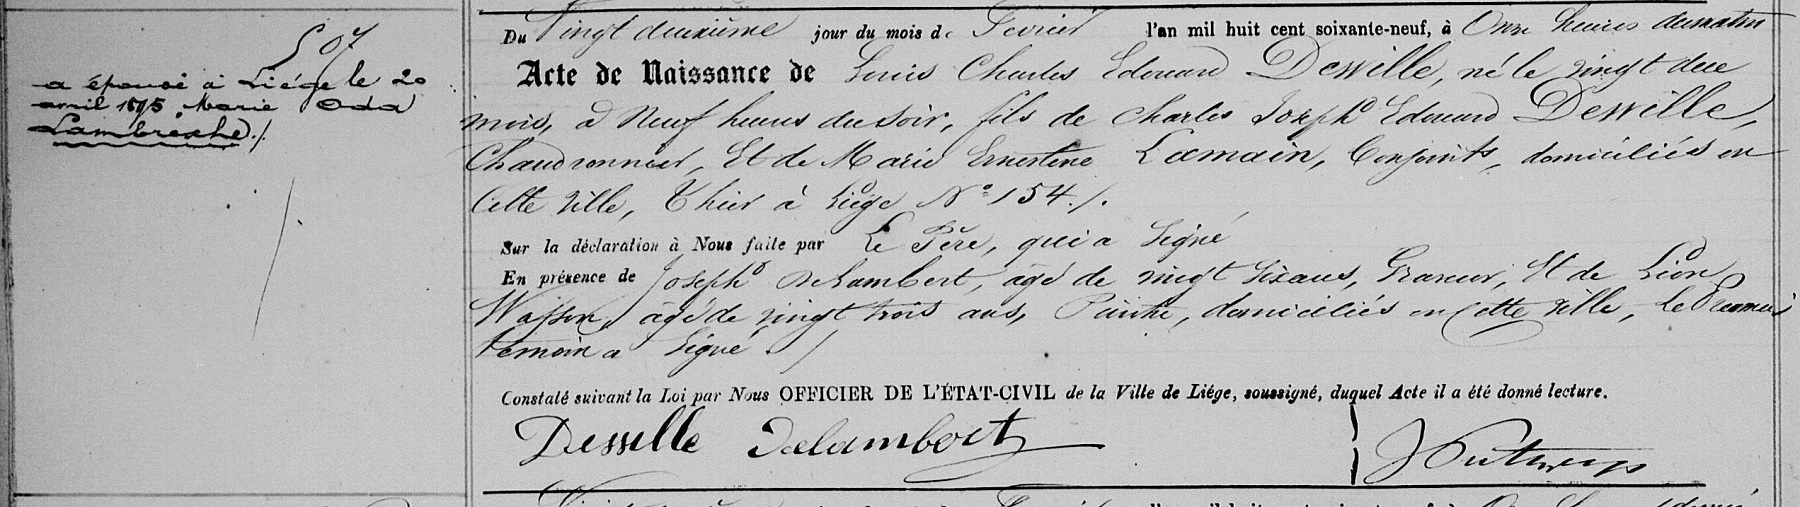 507
a épousé à Liége le 20
avril 1895 Marie Oda
Lambrèche./.
Du Vingt deuxième jour du mois de Fevrier l'an mil huit cent soixante-neuf, à Onze heures du matin
Acte de Naissance de Louis Charles Edouard Desville, né le vingt de ce
mois, à Neuf heures du soir, fils de Charles Joseph Edouard Desville,
Chaudronnier, Et de Marie Ernestine Lamain, Conjoints, domiciliés en
Cette Ville, Thier à Liége N° 154./.
Sur la déclaration à Nous faite par Le Père, qui a Signé
En présence de Joseph Delambert, âgé de vingt six ans, Graveur, Et de Léon
âgé de vingt trois ans, Peintre, domiciliés en Cette Ville, le Premier
témoin a Signé ./
Constaté suivant la Loi par Nous OFFICIER DE L'ÉTAT-CIVIL de la Ville de Liége, soussigné, duquel Acte il a été donné lecture.
Desville Delambert